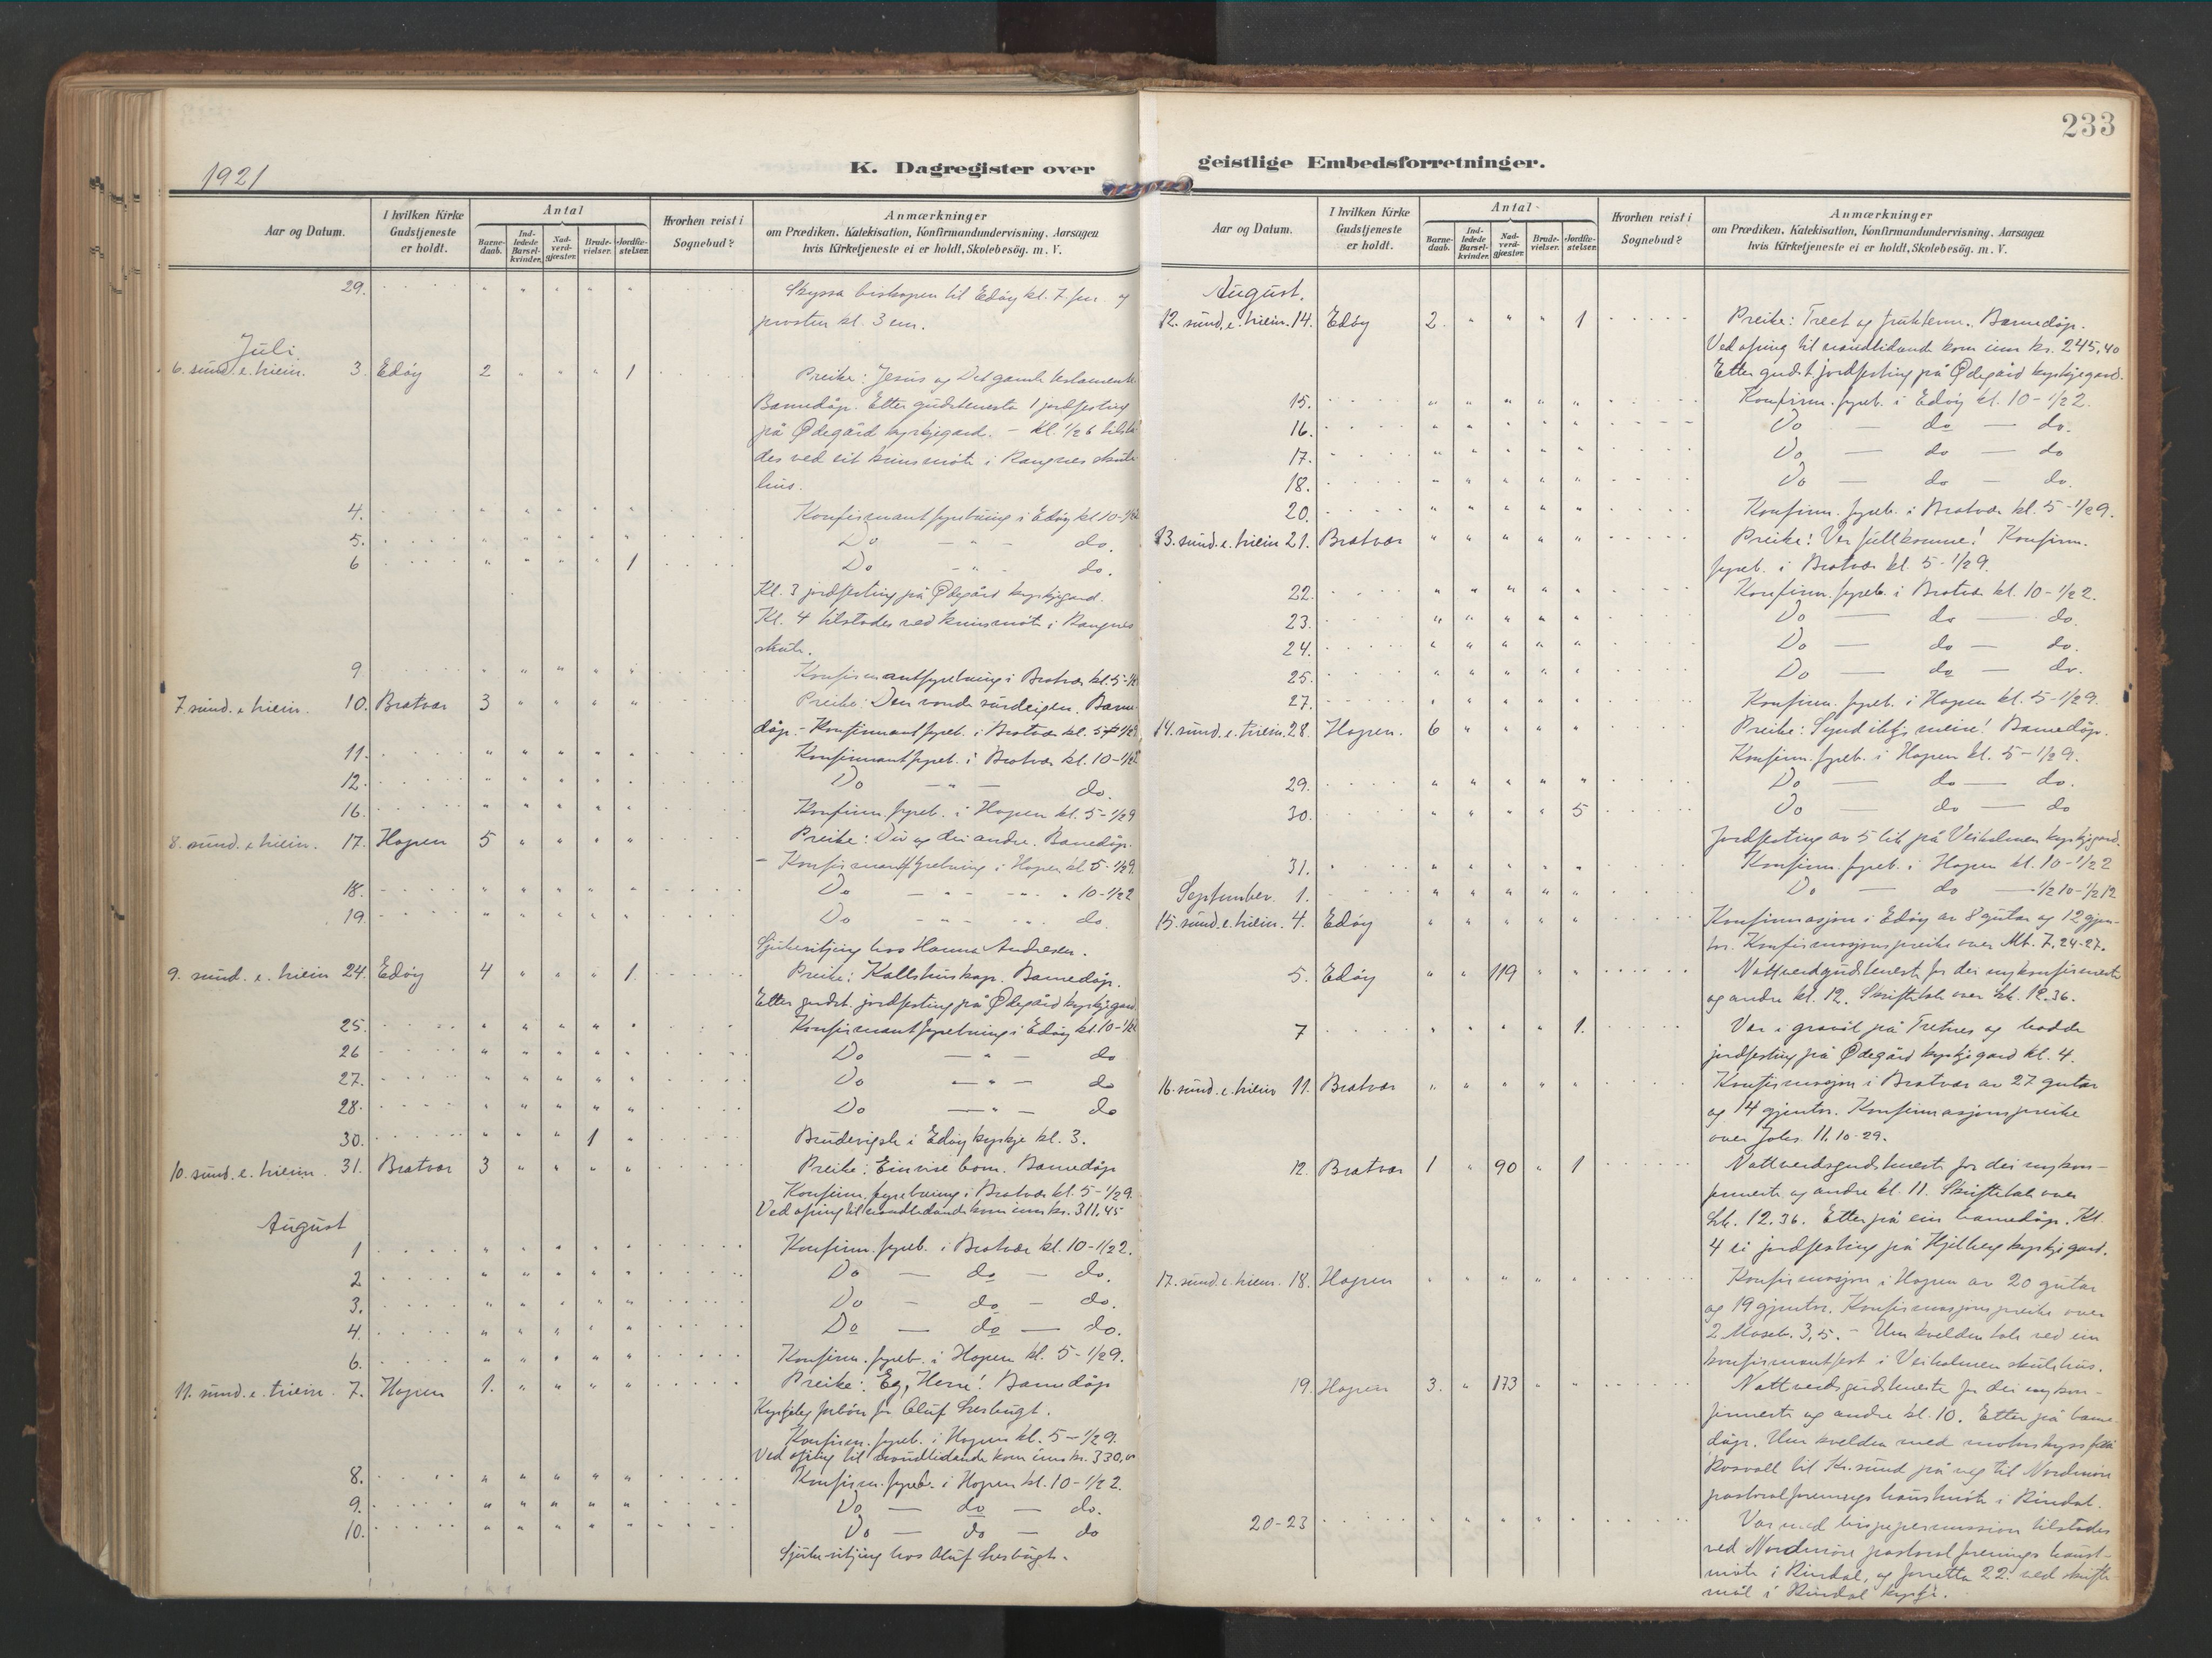 1921
K. Dagregister over
Aar og Datum.
I hvilken Kirke Gudstjeneste er holdt.
Antal
Barne-daab.
Ind-ledede Barsel-kvinder.
Nad-verd-gjæster.
Brude-vielser.
Jordfæ-stelser.
Hvorhen reist i Sognebud?
Anmærkninger
om Prædiken, Katekisation, Konfirmandundervisning. Aarsagen
hvis Kirketjeneste ei er holdt, Skolebesög. m. V.
29. Skyssa biskopen til Edøy kl. 7 fm. og
prosten kl. 3 em.
Juli
6. sund. e. triein. 3. Edøy 2 " " " 1 Preike: Jesus og Det gamle testamente
Barnedåp. Etter gudstenesta 1 jordfesting
på Ødegård kyrkjegard. - Kl. 1/2 6 tilsta
des ved eit krinsmøte i Rangnes skule
hus.
4. Konfirmantfyrebuing i Edøy kl 10-1/2 2
5. Do - " - do.
6 1 Do - " - do.
Kl. 3 jordfesting på Ødegård kyrkjegard.
Kl. 4 tilstades ved krinsmøte i Rangnes
skule.
9 Konfirmantfyrebuing i Bratvær kl. 5-1/2
7. sund. e. triein. 10. Bratvær 3 Preike: Den vonde surdeigen. Barne
dåp. - Konfirmantfyreb. i Bratvær kl. 5-1/2 9
11. Konfirmantfyreb. i Bratvær kl. 10-1/2 2
12. Do - " - do.
16. Konfirm. fyreb. i Hopen kl. 5-1/2 9
8. sund. e. triein. 17. Hopen 5 Preike: Du og dei andre. Barnedåp.
- Konfirmantfyrebuing i Hopen kl 5-1/2 9.
18. Do - " - " 10-1/2 2
19. Do - " - do.
Sjukevitjing hos Hanna Andresen.
9. sund. e. triein 24. Edøy 4 " " " 1. Preike: Kallskunskap. Barnedåp.
Etter gudst. jordfesting på Ødegård kyrkjegard.
25. Konfirmantfyrebuing i Edøy kl 10-1/2 2
26 Do - " - do
27. Do - " - do
28. Do - " - do
30. 1 Brudevigsle i Edøy kyrkje kl. 3.
10. sund. e. triein. 31. Bratvær 3 Preike: Ein vise bom. Barnedåp
Konfirm. fyrebuing i Bratvær kl. 5-1/2 9.
Ved ofring til naudlidande kom inn kr. 311,45
August
1 Konfirm. fyreb. i Bratvær kl. 10-1/2 2.
2 Do - do - do.
3. Do - do - do.
4. Do - do - do.
6. Konfirm. fyreb. i Hopen kl. 5-1/2 9.
11. sund. e. triein. 7. Hopen 1. Preike: Eg, Herre! Barnedåp
Kyrkjeleg forbøn for Oluf
Konfirm. fyreb. i Hopen kl. 5-1/2 9.
Ved ofring til naudlidande kom inn kr. 330,00
8. Konfirm. fyreb. i Hopen kl. 10-1/2 2.
9. Do - do - do.
10. Do - do - do
Sjukevitjing hos Oluf
233
geistlige Embedsforretninger.
Aar og Datum.
I hvilken Kirke Gudstjeneste er holdt.
Antal
Barne-daab.
Ind-ledede Barsel-kvinder.
Nad-verd-gjæster.
Brude-vielser.
Jordfæ-stelser.
Hvorhen reist i Sognebud?
Anmærkninger
om Prædiken, Katekisation, Konfirmandundervisning. Aarsagen
hvis Kirketjeneste ei er holdt, Skolebesög. m. V.
August.
12. sund. e. triein. 14. Edøy 2. " " " 1 Preike: Treet og fruktene. Barnedåp.
Ved ofring til naudlidande kom inn kr. 245,40
Etter gudst. jordfesting på Ødegård kyrkjegard.
15. Konfirm. fyreb. i Edøy kl. 10-1/2 2.
16. Do - do - do.
17. Do - do - do
18. Do - do - do.
20. Konfirm. fyreb. i Bratvær kl. 5-1/2 9.
13. sund. e. triein 21. Bratvær Preike: Ver fullkomne! Konfirm.
fyreb. i Bratvær kl. 5-1/2 9.
22. Konfirm. fyreb. i Bratvær kl. 10-1/2 2.
23. Do - do - do.
24. Do - do - do.
25. Do - do - do.
27. Konfirm. fyreb. i Hopen kl. 5-1/2 9.
14. sund. e. triein. 28. Hopen. 6 Preike: Synd ikkje meir! Barnedåp.
Konfirm. fyreb. i Hopen kl. 5-1/2 9.
29. Do - do - do.
30. 5 Do - do - do
Jordfesting av 5 lik på Veiholmen kyrkjegard.
31. Konfirm. fyreb. i Hopen kl. 10-1/2 2
September. 1. Do - do - 1/2 10-1/2 12
15. sund. e. triein. 4. Edøy Konfirmasjon i Edøy av 8 gutar og 12 gjen-
tor. Konfirmasjonspreike over Mt. 7, 24-27.
5. Edøy " " 119 " " Nattverdgudsteneste for dei nykonfirmerte
og andre kl. 12. Skriftetale over Lk. 12.36.
7 1. Var i gravøl på Tretnes og hadde
jordfesting på Ødegård kyrkjegard kl. 4.
16. sund. e. triein 11. Bratvær Konfirmasjon i Bratvær av 27 gutar
og 14 gjentor. Konfirmasjonspreike
over Johs. 11.10-29.
12. Bratvær 1 " 90 " 1 Nattverdsgudsteneste for dei nykon-
firmerte og andre kl. 11. Skriftetale over
Lk. 12.36. Etter på ein barnedåp. Kl.
4 ei jordfesting på Hjelberg kyrkjegard.
17. sund. e. triein. 18. Hopen Konfirmasjon i Hopen av 20 gutar
og 19 gjentor. Konfirmasjonspreike over
2 Moseb. 3,5. - Um kvelden tale ved ein
konfirmantfest i Veiholmen skulehus.
19. Hopen 3. " 173 " " Nattverdsgudsteneste for dei nykon-
firmerte og andre kl. 10. Etter på barne-
dåp. Um kvelden med motorskyss frå
Rosvoll til Kr.sund på veg til Nordmøre
pastoralforenings haustmøte i Rindal.
20-23 Var med bispepermission tilstades
ved Nordmøre pastoralforenings haust-
møte i Rindal, og forretta 22. ved skrifte-
mål i Rindal kyrkje.